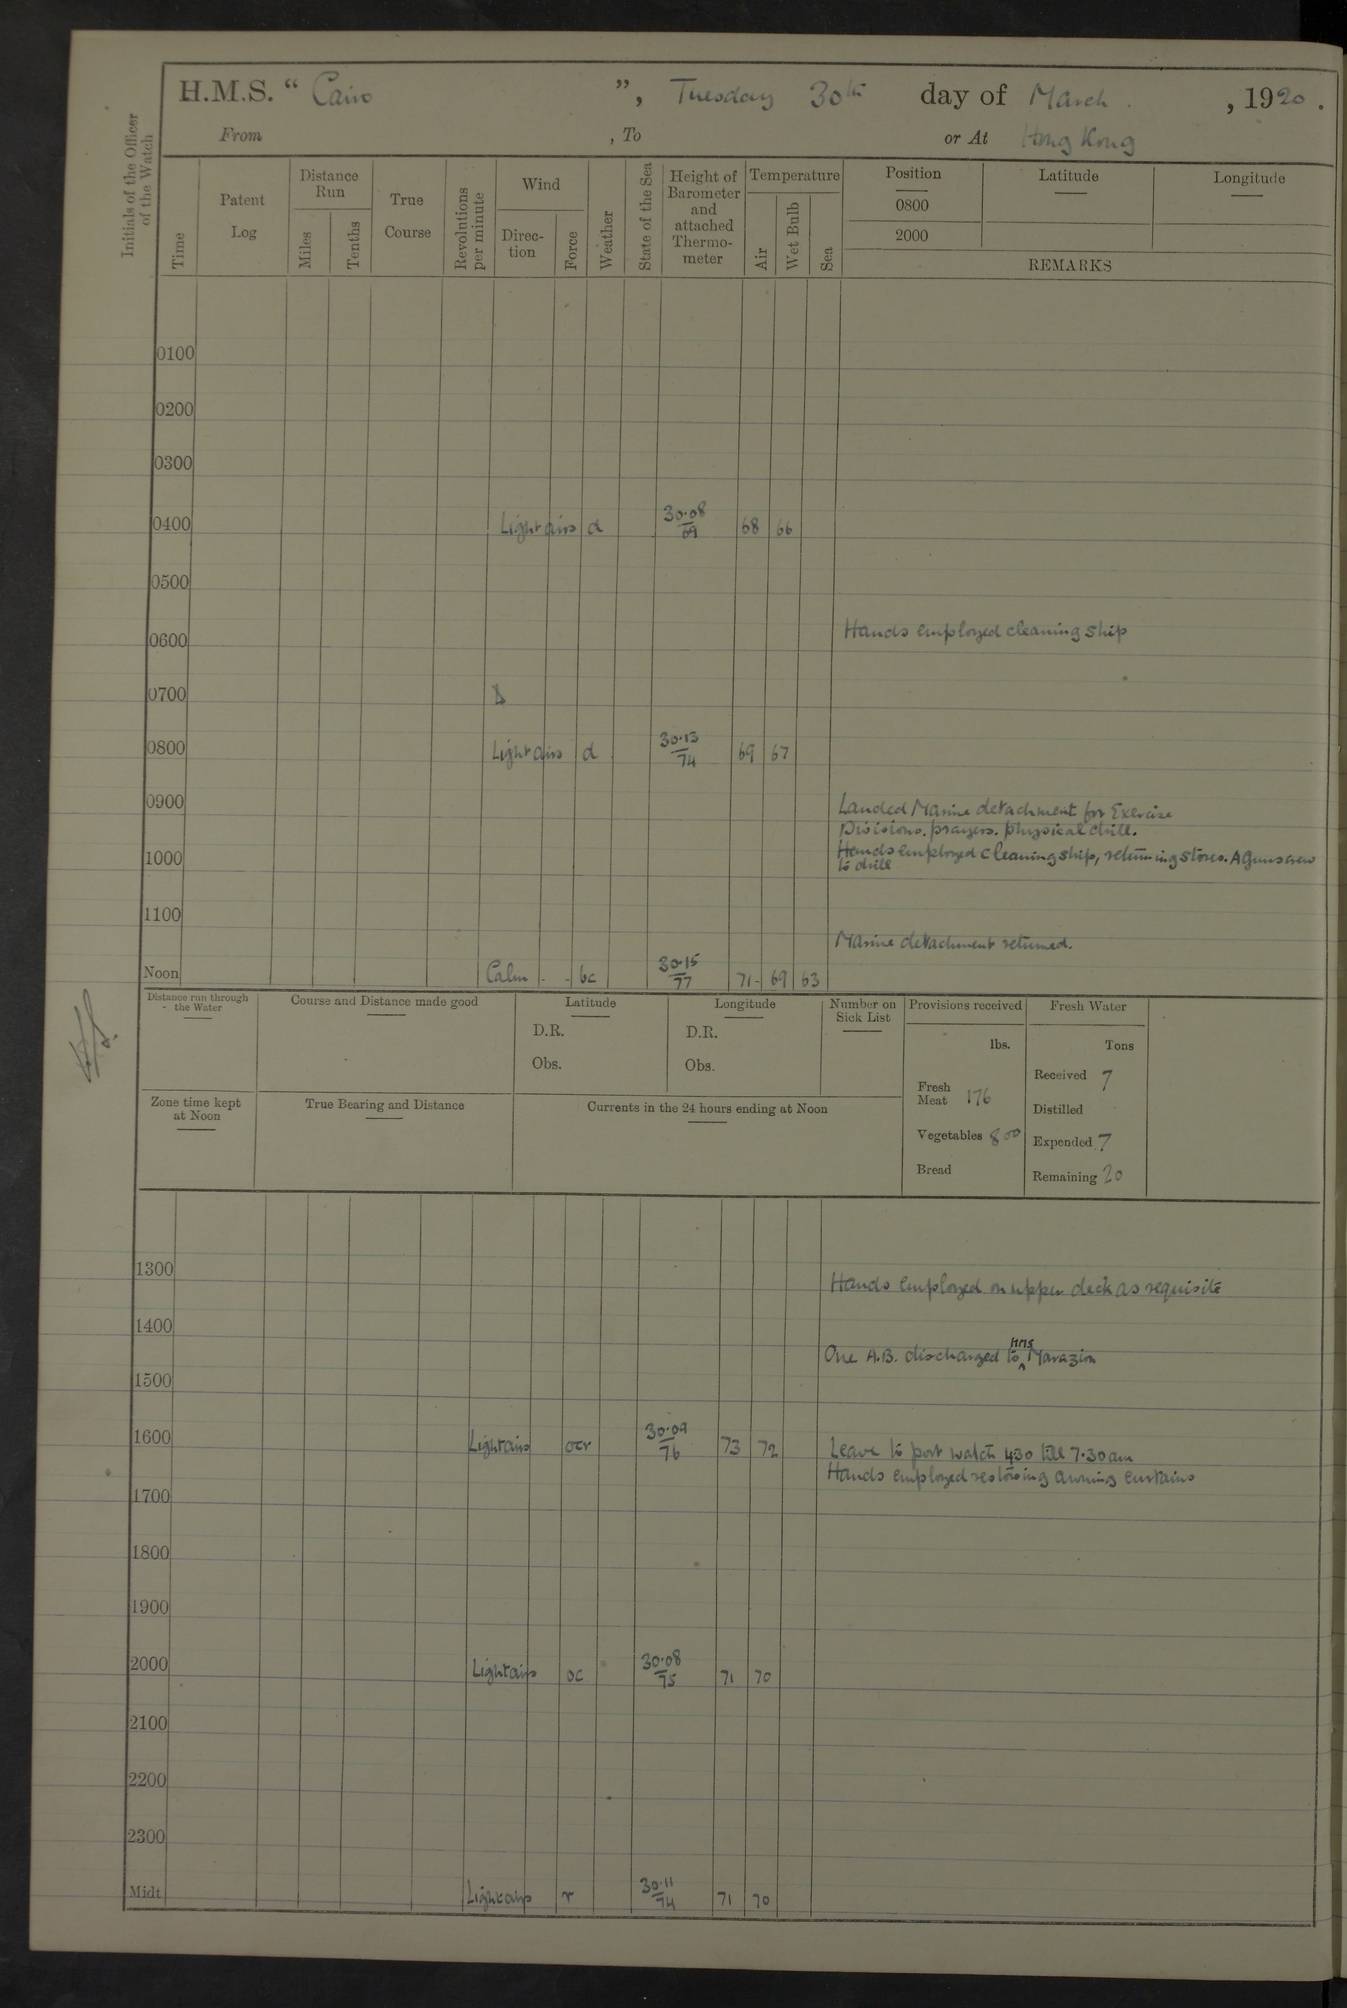 H.M.S. “ Cairo ”, Tuesday 30th day of March , 1920.
From , To or At Hong Kong
Initials of the Officer of the Watch
Time
Patent Log
Distance Run
Miles
Tenths
True Course
Revolutions per minute
Wind
Direc-tion
Force
Weather
State of the Sea
Height of Barometer and attached Thermo-meter
Temperature
Air
Wet Bulb
Sea
Position
0800
2000
Latitude
Longitude
REMARKS
0100
0200
0300
0400 Light airs d 30.08/69 68 66
0500
Hands employed cleaning ship
0600
0700
0800 Light airs d 30.13/74 69 67
0900 Landed Marine detachment for Exercise
Divisions. prayers. physical drill.
Hands employed cleaning ship, returning stores. A Guns crew
1000 to drill
1100
Marine detachment returned.
Noon Calm - - bc 30.15/77 71 69 63
Distance run through the Water
Course and Distance made good
Latitude
D.R.
Obs.
Longitude
D.R.
Obs.
Number on Sick List
Provisions received
lbs.
Fresh Meat 176
Vegetables 800
Bread
Fresh Water
Tons
Received 7
Distilled
Expended 7
Remaining 20
Zone time kept at Noon
True Bearing and Distance
Currents in the 24 hours ending at Noon
1300 Hands employed on upper deck as requisite
1400
One A.B. discharged to HMS Marazion
1500
1600 Light airs ocr 30.09/76 73 72 Leave to port watch 430 till 7.30 am
Hands employed restowing awning curtains
1700
1800
1900
2000 Light airs oc 30.08/75 71 70
2100
2200
2300
Midt. Light airs r 30.11/74 71 70